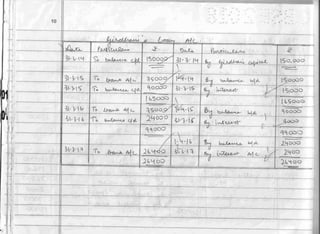 10
Giridhari's Loan A/c
Date Particulars ₹ Date Particulars ₹
31-3-14 To balance c/d 150000 31-3-14 By Giridhari capital 150,000
31-3-15 To bank A/c 75000 By balance b/d 150000
31-3-15 To balance c/d 90000 31-3-15 By interest 15000
165000 165000
31-3-16 To bank A/c 75000 By balance b/d 90000
31-3-16 To balance c/d 24000 31-3-16 By interest 9000
99000 99000
1-4-16 By balance b/d 24000
31-3-17 To bank A/c 26400 31-3-17 By interest A/c 2400
26400 26400